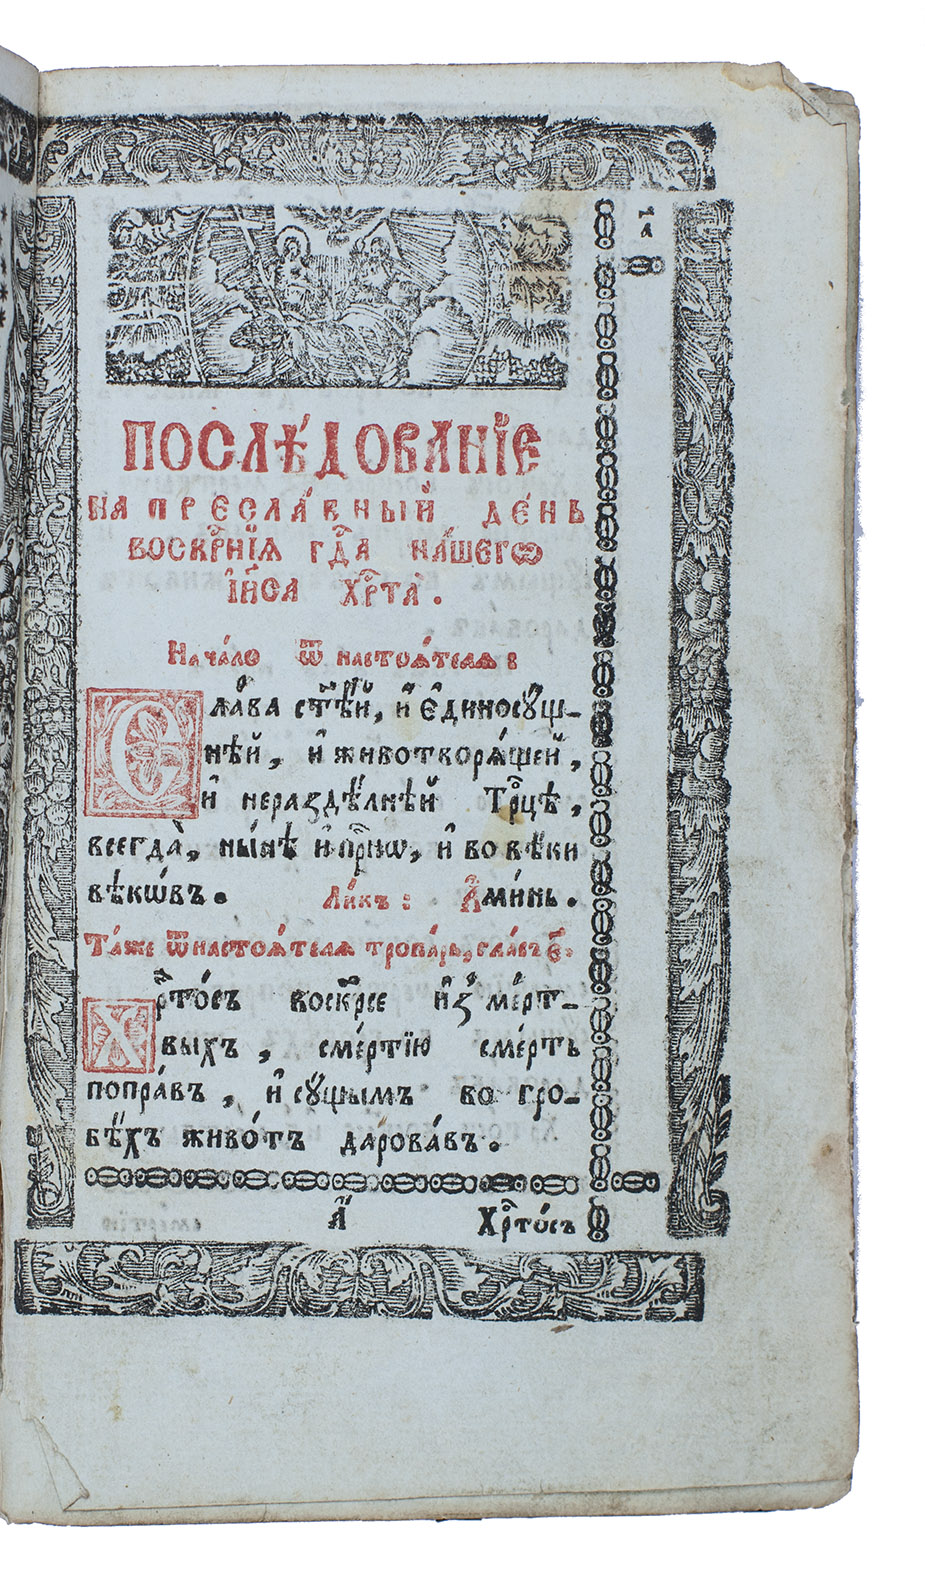 а҃
ПОСЛѢ́ДОВАНЇЕ
НА ПРЕСЛА́ВНЫЙ ДЕ́НЬ
ВОСКР҃НЇѦ ГДⷭ҇А НА́ШЕГѠ
І҆И҃СА ХРⷭ҇ТА .
Нача́ло ѿ настоѧ́телѧ :
Сла́ва ст҃ѣ́й, и҆ є҆диносꙋ́щ-
нѣй, и҆ животворѧ́щей,
и҆ нераздѣ́лнѣй Трⷪ҇цѣ,
всегда̀, ны́нѣ и҆ при́снѡ, и҆ во вѣ́ки
вѣкѡ́въ. Ли́къ : А҆ми́нь.
Та́же ѿ настоѧ́телѧ тропа́рь, гла́съ є҃.
Хрⷭ҇то́съ воскр҃се и҆з̾ ме́рт-
выхъ, сме́ртїю сме́рть
попра́въ, и҆ сꙋ́щымъ во гро-
бѣ́хъ живо́тъ дарова́въ.
А҃ Хрⷭ҇то́съ